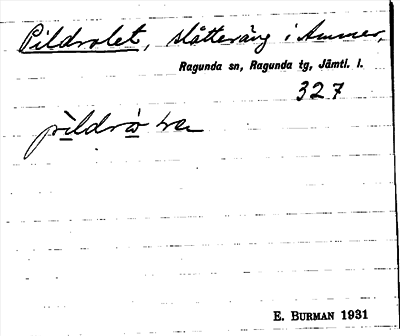 Pildrolet, slåtteräng i Ammer,
Ragunda sn, Ragunda tg, Jämtl. l.
327
E. BURMAN 1931